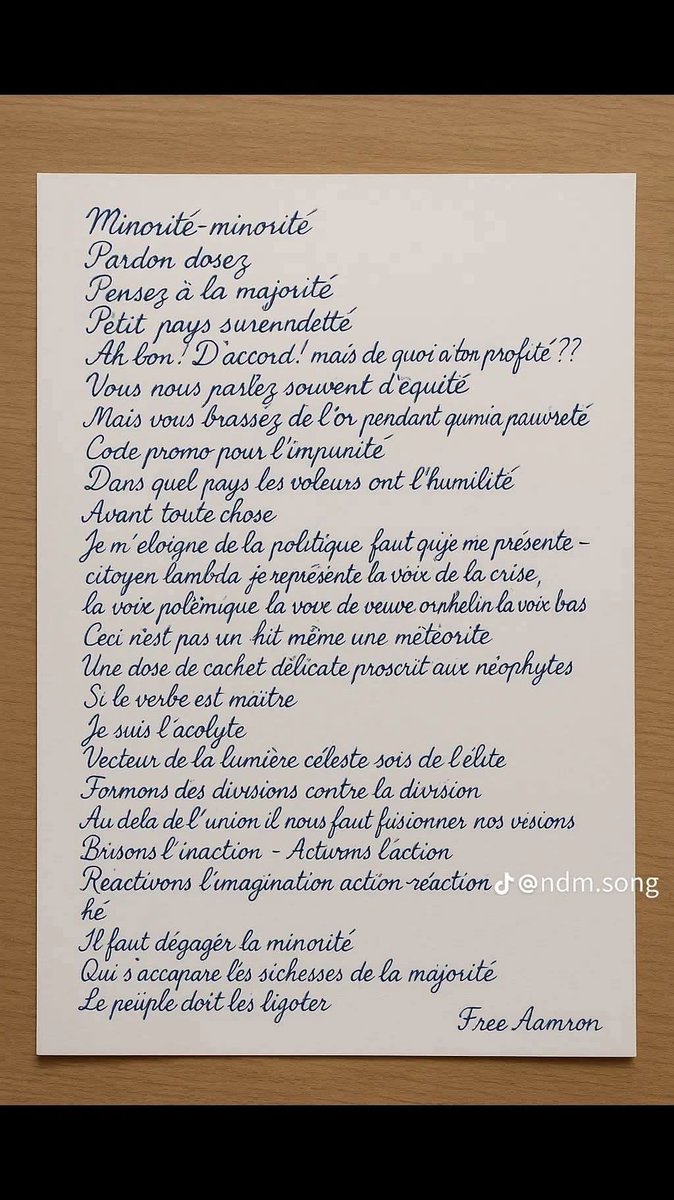 Minorité-minorité
Pardon dosez
Pensez à la majorité
Petit pays surenndetté
Ah bon! D'accord! mais de quoi a ton profité??
Vous nous parlez souvent d'équité
Mais vous brassez de l'or pendant qumia pauvreté
Code promo pour l'impunité
Dans quel pays les voleurs ont l'humilité
Avant toute chose
Je m'éloigne de la politique faut quje me présente –
citoyen lambda je représente la voix de la crise,
la voix polémique la voix de veuve orphelin la voix bas
Ceci n'est pas un hit même une météorite
Une dose de cachet délicate proscrit aux néophytes
Si le verbe est maître
Je suis l'acolyte
Vecteur de la lumière céleste sois de l'élite
Formons des divisions contre la division
Au dela de l'union il nous faut fusionner nos visions
Brisons l'inaction - Acturms l'action
Réactivons l'imagination action-réaction
@ndm.song
hé
Il faut dégagér la minorité
Qui s'accapare lés sichesses de la majorité
Le peuple doit les ligoter
Free Aamron